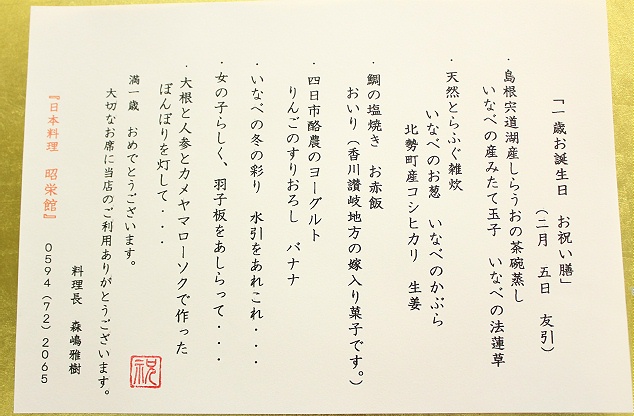 「一歳お誕生日　お祝い膳」
（二月　五日　友引）
・島根宍道湖産しらうおの茶碗蒸し
いなべの産みたて玉子　いなべの法蓮草
・天然とらふぐ雑炊
いなべのお葱　いなべのかぶら
北勢町産コシヒカリ　生姜
・鯛の塩焼き　お赤飯
おいり（香川讃岐地方の嫁入り菓子です。）
・四日市酪農のヨーグルト
りんごのすりおろし　バナナ
・いなべの冬の彩り　水引をあれこれ・・・
・女の子らしく、羽子板をあしらって・・・
・大根と人参とカメヤマローソクで作った
ぼんぼりを灯して・・・
満一歳　おめでとうございます。
大切なお席に当店のご利用ありがとうございます。
料理長　森嶋雅樹
『日本料理　昭栄館』　0594（72）2065
祝